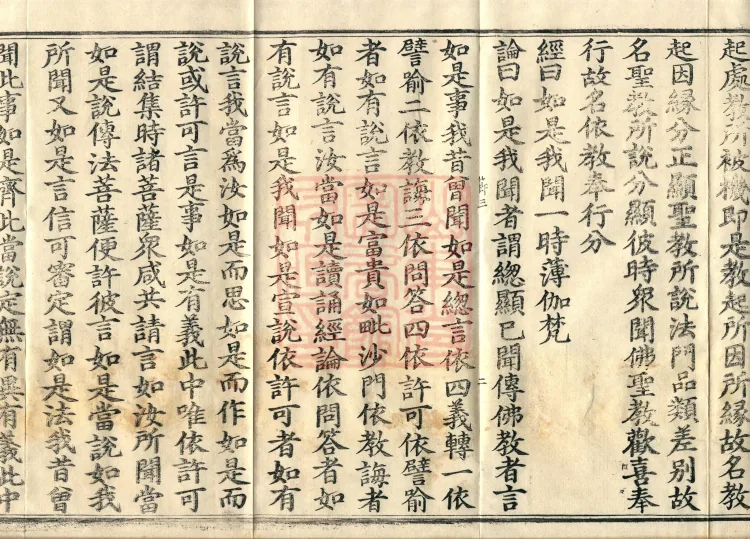 起處教所被機即是教起所因所縁故名教
起因縁分正顯聖教所說法門品類差別故
名聖教所說分顯彼時衆聞佛聖教歡喜奉
行故名依教奉行分
經曰如是我聞一時薄伽梵
論曰如是我聞者謂總顯已聞傳佛教者言
二
如是事我昔曾聞如是總言依四義轉一依
譬喻二依教誨三依問答四依許可依譬喻
者如有說言如是富貴如毗沙門依教誨者
如有說言汝當如是讀誦經論依問答者如
有說言如是我聞如是宣說依許可者如有
說言我當爲汝如是而思如是而作如是而
說或許可言是事如是有義此中唯依許可
謂結集時諸菩薩衆咸共請言如汝所聞當
如是說傳法菩薩便許彼言如是當說如我
所聞又如是言信可審定謂如是法我昔曾
聞此事如是齊此當說定無有異有義此中